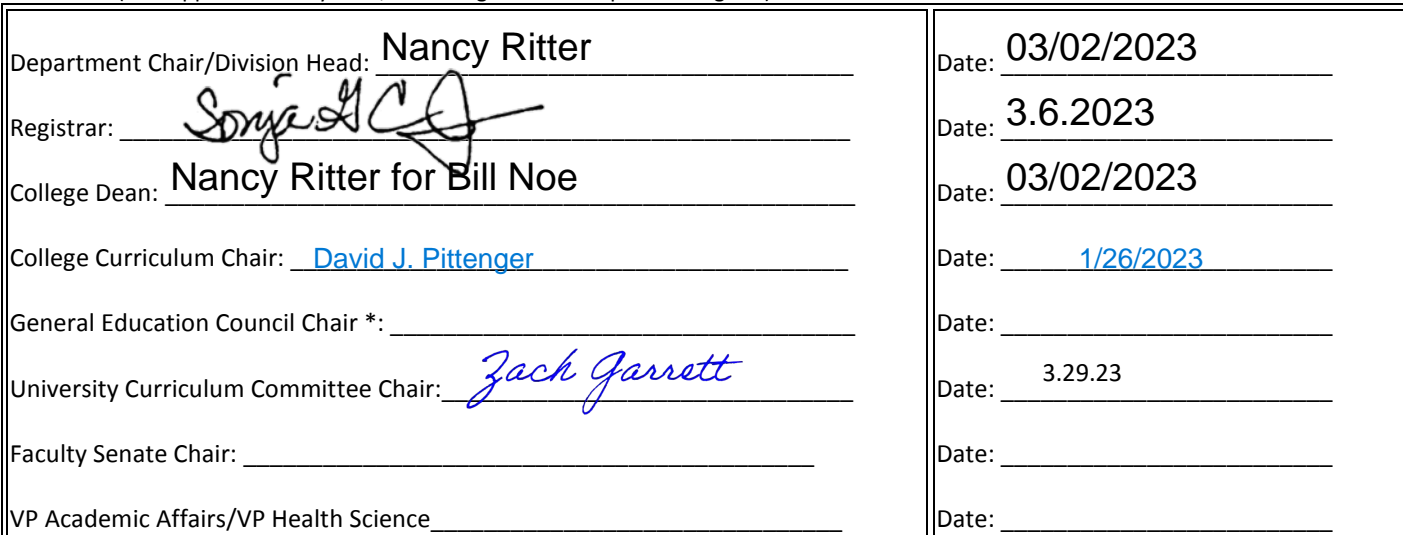 Department Chair/Division Head: Nancy Ritter Date: 03/02/2023
Registrar: Sonja G C Date: 3.6.2023
College Dean: Nancy Ritter for Bill Noe Date: 03/02/2023
College Curriculum Chair: David J. Pittenger Date: 1/26/2023
General Education Council Chair *: Date:
University Curriculum Committee Chair: Zach Garrett Date: 3.29.23
Faculty Senate Chair: Date:
VP Academic Affairs/VP Health Science Date: